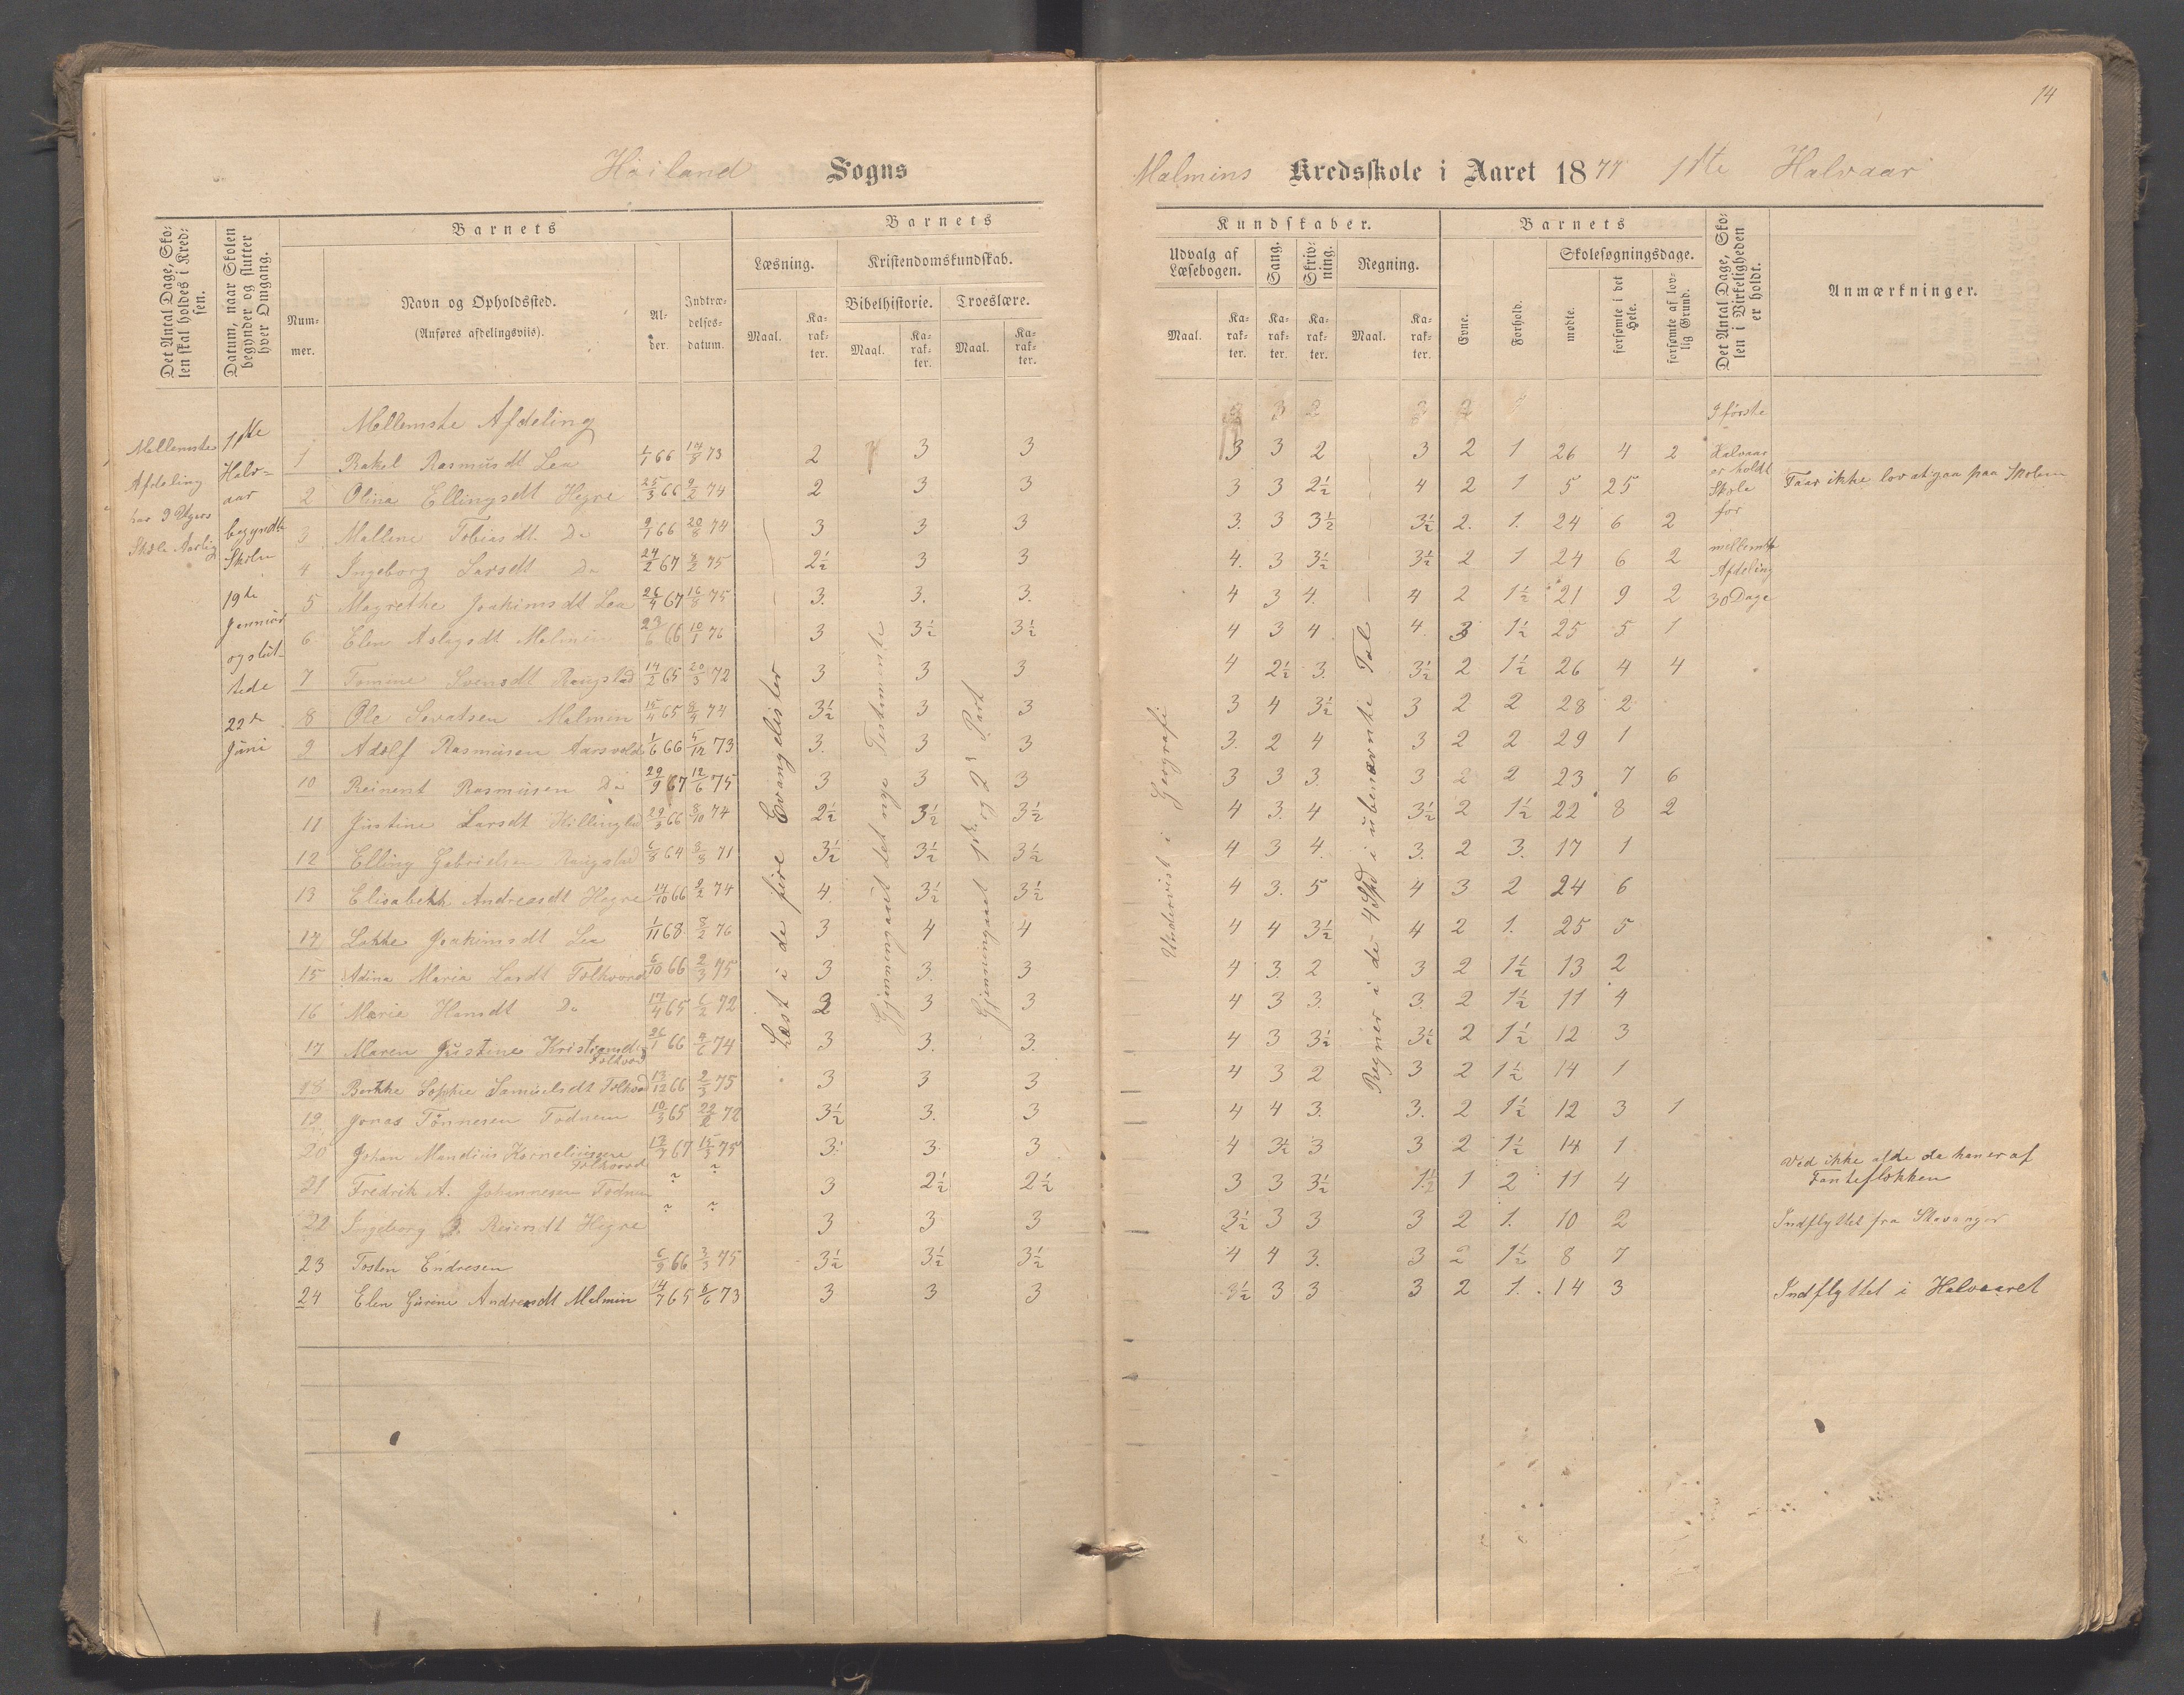 14
Høiland Sogns
Malmins Kredsskole i Aaret 1877 1ste Halvaar
Det Antal Dage, Skolen skal holdes i Kredsen.
Datum, naar Skolen begynder og slutter hver Omgang.
Barnets
Nummer.
Navn og Opholdssted.
(Anføres afdelingsviis).
Alder.
Indtrædelsesdatum.
Barnets
Læsning.
Kristendomskundskab.
Bibelhistorie.
Troeslære.
Maal.
Karakter.
Maal.
Karakter.
Maal.
Karakter.
Kundskaber.
Udvalg af Læsebogen.
Sang.
Skrivning.
Regning.
Maal.
Karakter.
Karakter.
Karakter.
Maal.
Karakter.
Barnets
Evne.
Forhold.
Skolesøgningsdage.
mødte.
forsømte i det Hele.
forsømte af lovlig Grund.
Det Antal Dage, Skolen i Virkeligheden er holdt.
Anmærkninger.
Mellemste Afdeling har 9 Ugers Skole Aarlig
1ste Halvaar begyndte Skolen 19de Januar og sluttede 22de Juni
Læst i de fire Evangelister
Gjennemgaaet det nye Testamente
Gjennemgaaet 1ste og 2den Part
Undervist i Geografi
Regner i de 4 Spd i ubenævnte Tal
I første Halvaar er holdt Skole for mellemste Afdeling 30 Dage
Mellemste Afdeling
1 Rakel Rasmusdt Lea 1/7 66 14/8 73 2 3 3 3 3 2 3 2 1 26 4 2
2 Olina Ellingsdt Hegre 25/3 66 9/2 74 2 3 3 3 3 2½ 4 2 1 5 25 Faar ikke lov at gaa paa Skolen
3 Mallene Tobiasdt. Do 9/7 66 20/8 74 3 3 3 3. 3 3½ 3½ 2. 1. 24 6 2
4 Ingeborg Larsdt Do 24/2 67 8/2 75 2½ 3 3 4. 3 3½ 3½ 2 1 24 6 2
5 Magrethe Joakimsdt Lea 26/4 67 16/8 75 3. 3. 3. 4 3 4. 4 2 1½ 21 9 2
6 Elen Aslagsdt Malmin 23/6 66 10/1 76 3 3½ 3½ 4 3 4 4. 3 1½ 25 5 1
7 Tomine Svensdt Raugstad 14/2 65 20/3 72 3 3 3 4 2½ 3. 3½ 2 1½ 26 4 4
8 Ole Sevatsen Malmin 15/4 65 8/4 74 3½ 3 3 3 4 3½ 3 2 2 28 2
9 Adolf Rasmusen Aarsvold 1/6 66 5/12 73 3. 3 3 3. 2 4 3 2 2 29 1
10 Reinert Rasmusen Do 29/9 67 12/6 75 3 3 3 3 3 3. 3 2 2 23 7 6
11 Justine Larsdt Hillinglid 29/3 66 8/10 74 2½ 3½ 3½ 4 3. 4 3½ 2 1½ 22 8 2
12 Elling Gabrielsen Raugstad 6/8 64 3/3 71 3½ 3½ 3½ 4 3 4. 3. 2 3. 17 1
13 Elisabeth Andreasdt Hegre 14/10 66 9/2 74 4. 3½ 3½ 4 3. 5 4 3 2 24 6
14 Lakke Joakimsdt Lea 1/11 68 8/2 76 3 4 4 4 4 3½ 4 2 1. 25 5
15 Adina Maria Lardt Folkvord 6/10 66 2/3 75 3 3. 3 4 3. 2 3 2 1½ 13 2
16 Marie Hansdt Do 17/4 65 6/2 72 3 3 3 4 3 3. 3. 2 1½ 11 4
17 Maren Justine Kristiansdt Folkvord 26/1 66 9/6 74 3 3. 3. 4 3 3½ 3½ 2 1½ 12 3
18 Berthe Sophie Samuelsdt Folkvord 13/12 66 2/3 75 3 3 3 4 3 2 3 2 1½ 14 1
19 Jonas Tønnesen Fodnem 10/3 65 22/2 72 3½ 3. 3 4 4 3. 3. 2 1½ 12 3 1
20 Johan Mandius Korneliusene Folkvord 13/7 67 15/3 75 3. 3. 3 4 3½ 3 3 2 1½ 14 1
21 Fredrik A. Johannesen Fodnem ~ ~ 3 2½ 2½ 3 3 3½ 1½ 1 2 11 4 Ved ikke alde da han er af Fanteflokken
22 Ingeborg Reiersdt Hegre ~ ~ 3 3 3 3½ 3 3 3 2 1. 10 2 Indflyttet fra Stavanger
23 Tosten Endresen 6/9 66 3/3 75 3½ 3½ 3½ 4 4 3. 3 2 1½ 8 7
24 Elen Gurine Andreasdt Malmin 14/7 65 6/6 73 3 3 3 3½ 3 3 3 2 1. 14 3 Indflyttet i Halvaaret